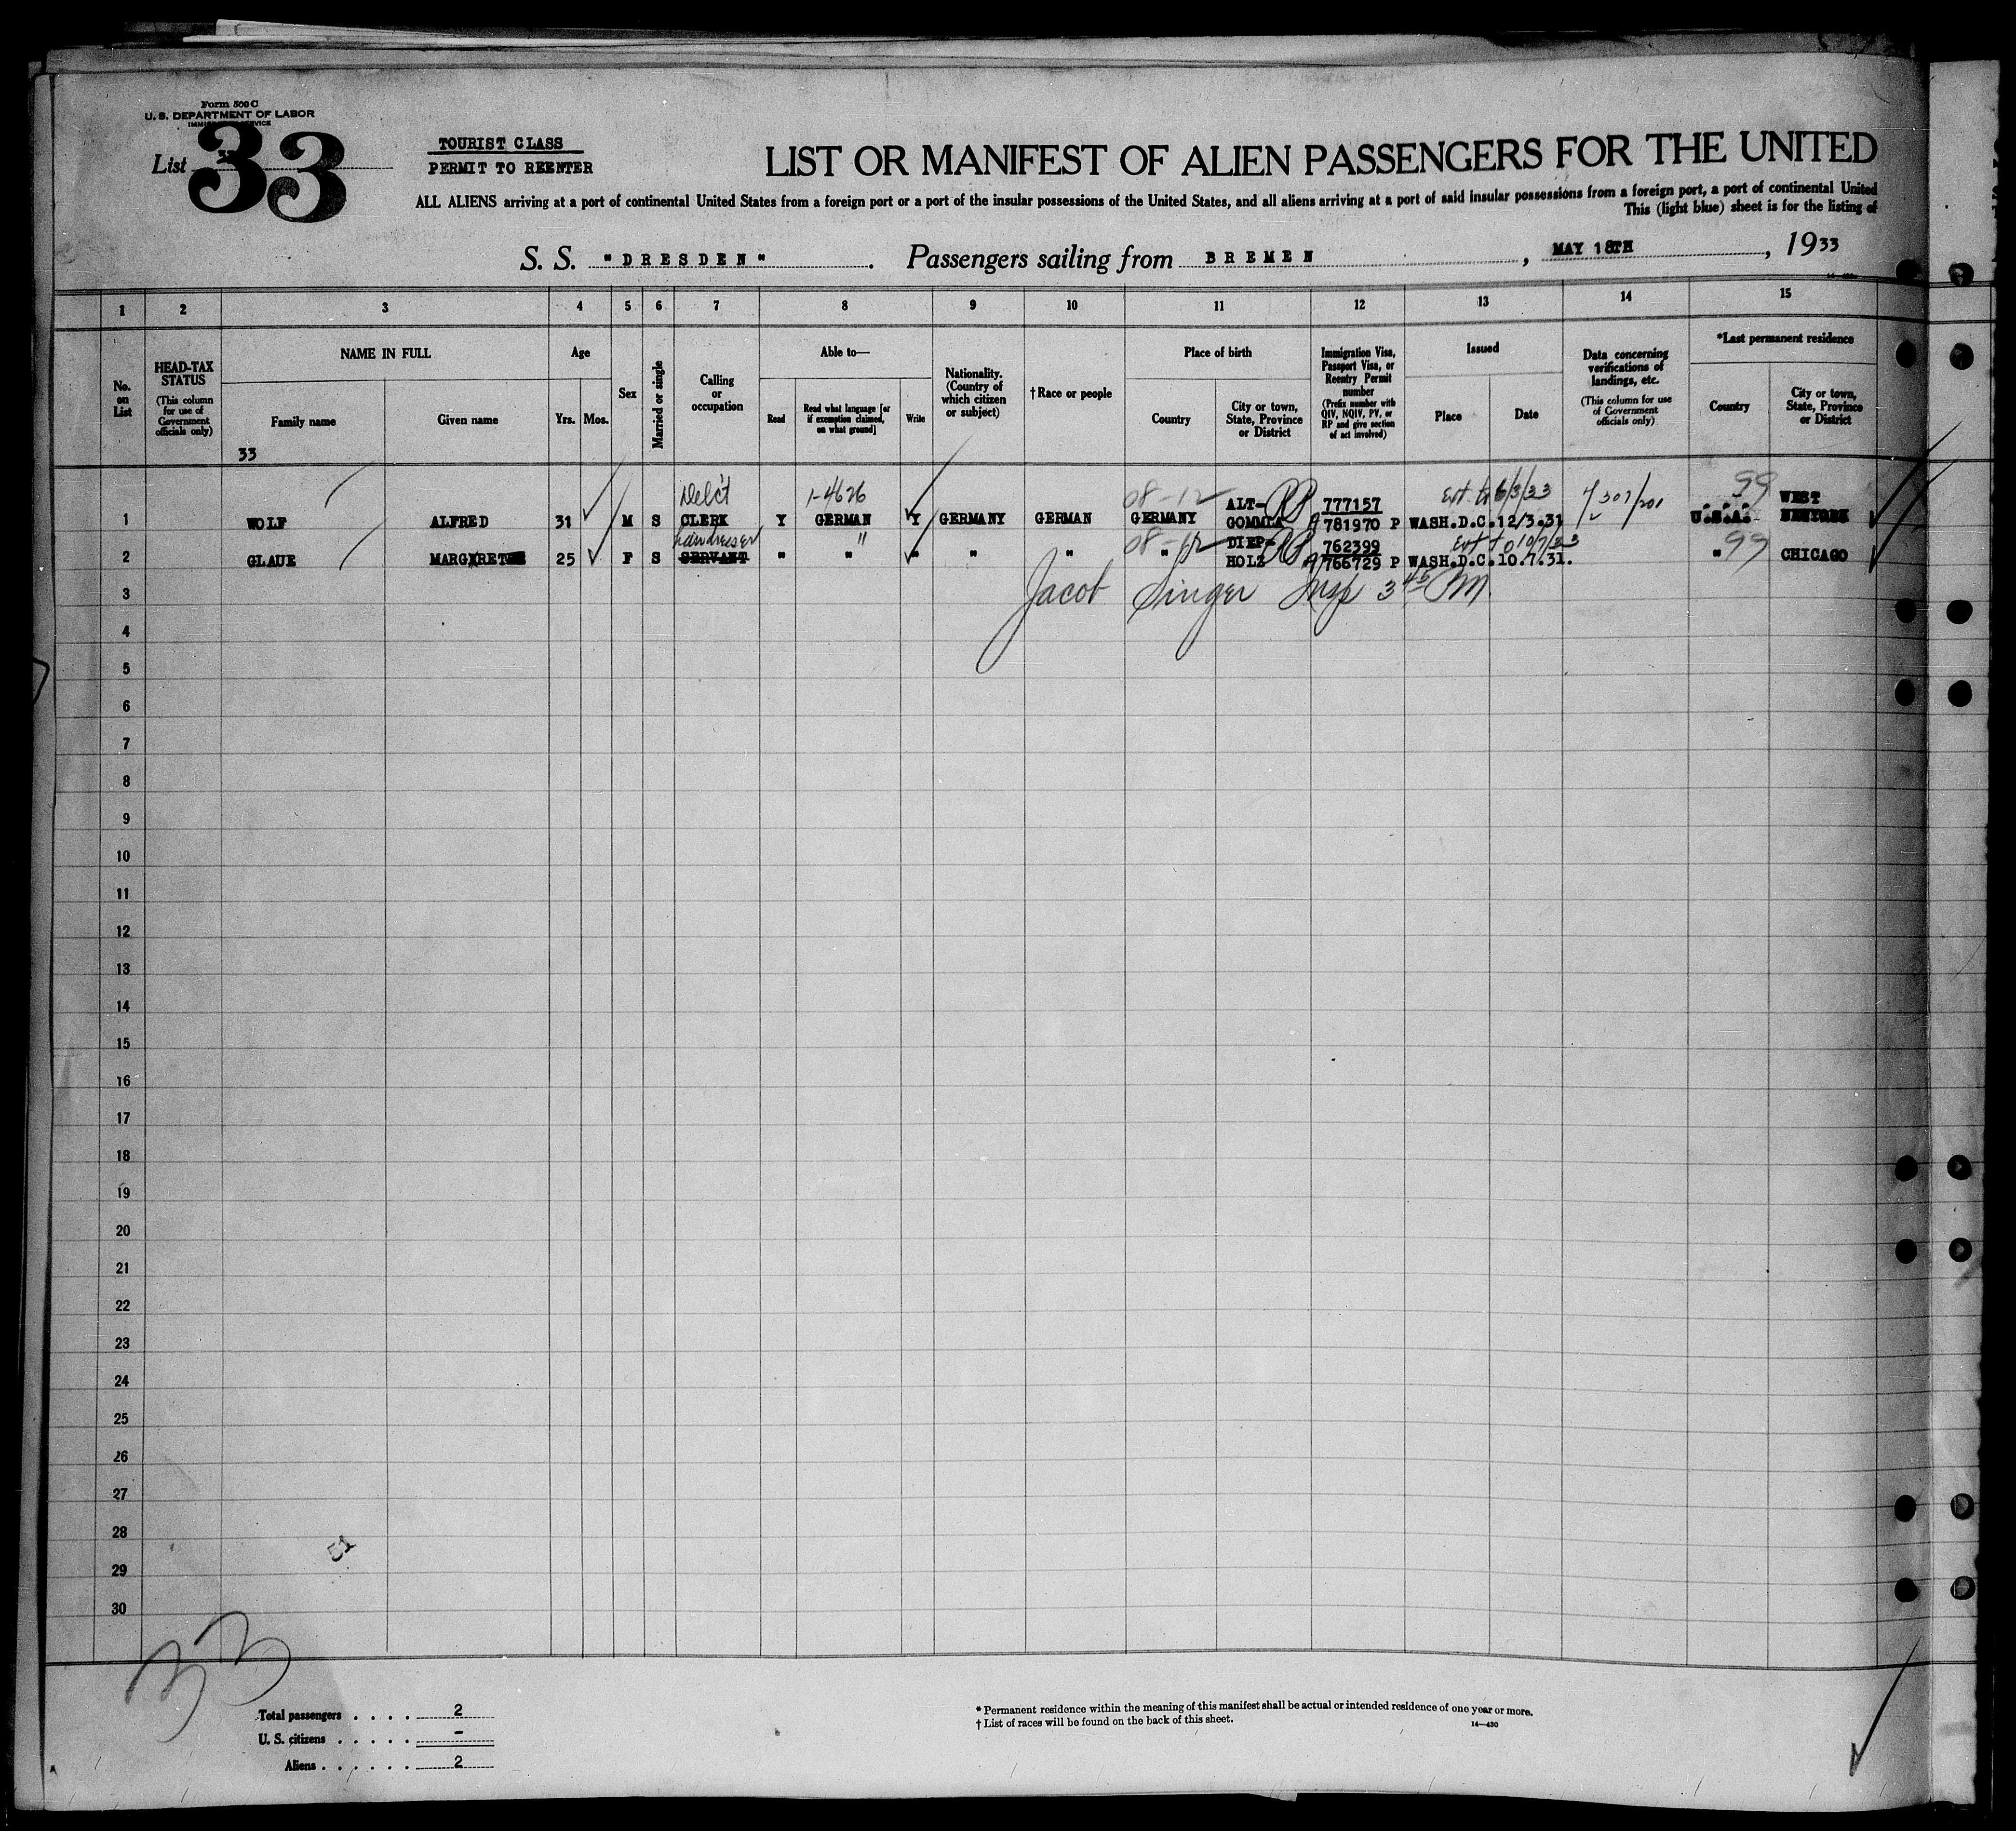 Form 500 C
U. S. DEPARTMENT OF LABOR
List 33
TOURIST CLASS
PERMIT TO REENTER
LIST OR MANIFEST OF ALIEN PASSENGERS FOR THE UNITED
ALL ALIENS arriving at a port of continental United States from a foreign port or a port of the insular possessions of the United States, and all aliens arriving at a port of said insular possessions from a foreign port, a port of continental United
This (light blue) sheet is for the listing of
S. S. "DRESDEN". Passengers sailing from BREMEN, MAY 18TH, 1933
1 2 3 4 5 6 7 8 9 10 11 12 13 14 15
No. on List
HEAD-TAX STATUS (This column for use of Government officials only)
NAME IN FULL
Family name
Given name
33
Age
Yrs. Mos.
Sex
Married or single
Calling or occupation
Able to—
Read
Read what language [or if exemption claimed, on what ground]
Write
Nationality. (Country of which citizen or subject)
† Race or people
Place of birth
Country
City or town, State, Province or District
Immigration Visa, Passport Visa, or Reentry Permit number (Prefix number with QIV, NQIV, PV, or RP and give section of act involved)
Issued
Place
Date
Data concerning verifications of landings, etc. (This column for use of Government officials only)
*Last permanent residence
Country
City or town, State, Province or District
1-4626 08-12 ALT- 777157 99 WEST
1 WOLF ALFRED 31 M S CLERK Y GERMAN Y GERMANY GERMAN GERMANY GOMMLA 781970 P WASH.D.C. 12/3.31 U.S.A. NEWYORK
" 08-12 DIEP- 762399 99
2 GLAUE MARGARETE 25 F S SERVANT " " " " " " HOLZ 766729 P WASH.D.C. 10.7.31. " CHICAGO
Jacob Singer Insp 3 45 PM
3
4
5
6
7
8
9
10
11
12
13
14
15
16
17
18
19
20
21
22
23
24
25
26
27
28
29
30
33
Total passengers . . . . 2
U. S. citizens . . . . . –
Aliens . . . . . . 2
* Permanent residence within the meaning of this manifest shall be actual or intended residence of one year or more.
† List of races will be found on the back of this sheet.
14—430